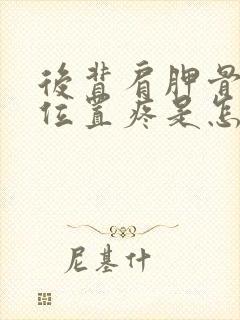 后背肩胛骨
位置疼是怎
尼基什